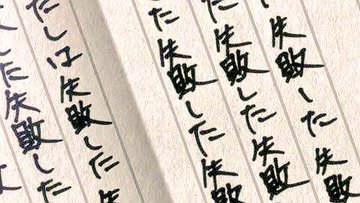 失敗した失敗
した失敗した失敗
した失敗した失敗
たしは失敗した失
した失敗した